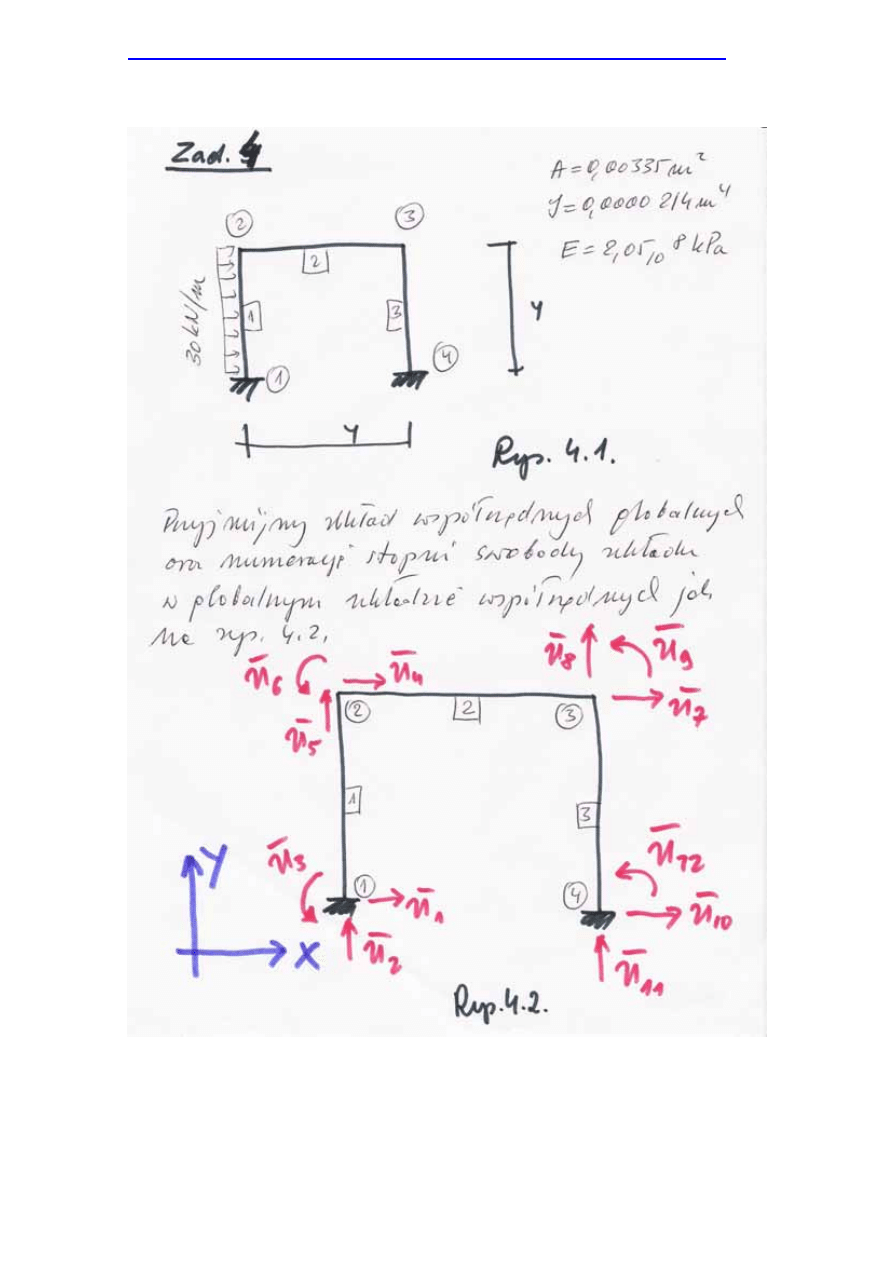 Zad. 4
A = 0,00335 m²
J = 0,0000 214 m⁴
E = 2,05₁₀ 8 kPa
2 3
2
30 kN/m
1 3 4
1 4
4
Rys. 4.1.
Przyjmijmy układ współrzędnych globalnych
oraz numerację stopni swobody układu
w globalnym układzie współrzędnych jak
na rys. 4.2.
ū6 ū4 ū8 ū9
ū7
2 2 3
ū5
1 3
Y ū3 ū12
1 ū1 4 ū10
X ū2 ū11
Rys. 4.2.